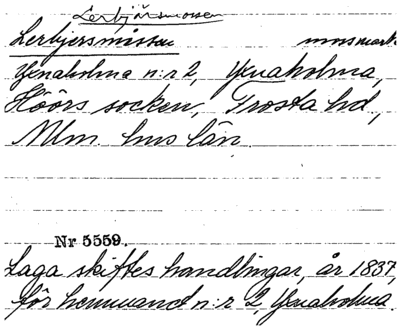 Lerbjärsmossen
Lerbjersmissen mosmark.
Yxnaholma n:r 2, Yxnaholma,
Höörs socken, Frosta hd,
Mlm. hus län.
Nr 5559.
Laga skiftes handlingar, år 1837,
för hemmanet n:r 2, Yxnaholma.